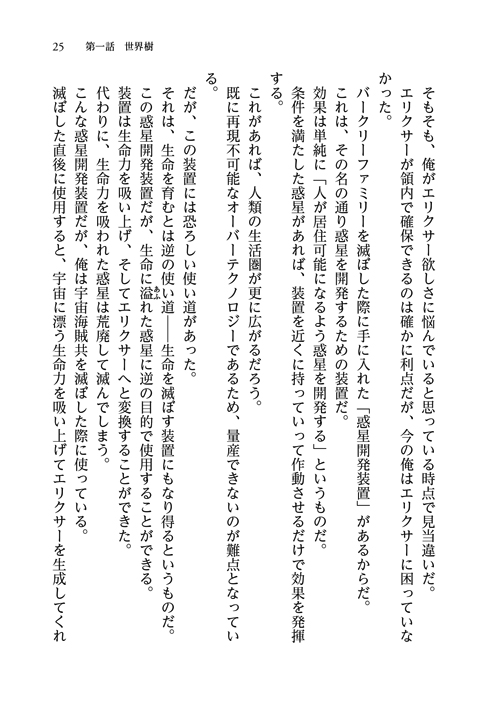 25　第一話　世界樹
そもそも、俺がエリクサー欲しさに悩んでいると思っている時点で見当違いだ。
エリクサーが領内で確保できるのは確かに利点だが、今の俺はエリクサーに困っていな
かった。
バークリーファミリーを滅ぼした際に手に入れた「惑星開発装置」があるからだ。
これは、その名の通り惑星を開発するための装置だ。
効果は単純に「人が居住可能になるよう惑星を開発する」というものだ。
条件を満たした惑星があれば、装置を近くに持っていって作動させるだけで効果を発揮
する。
これがあれば、人類の生活圏が更に広がるだろう。
既に再現不可能なオーバーテクノロジーであるため、量産できないのが難点となってい
る。
だが、この装置には恐ろしい使い道があった。
それは、生命を育むとは逆の使い道――生命を滅ぼす装置にもなり得るというものだ。
この惑星開発装置だが、生命に溢れた惑星に逆の目的で使用することができる。
装置は生命力を吸い上げ、そしてエリクサーへと変換することができた。
代わりに、生命力を吸われた惑星は荒廃して滅んでしまう。
こんな惑星開発装置だが、俺は宇宙海賊共を滅ぼした際に使っている。
滅ぼした直後に使用すると、宇宙に漂う生命力を吸い上げてエリクサーを生成してくれ